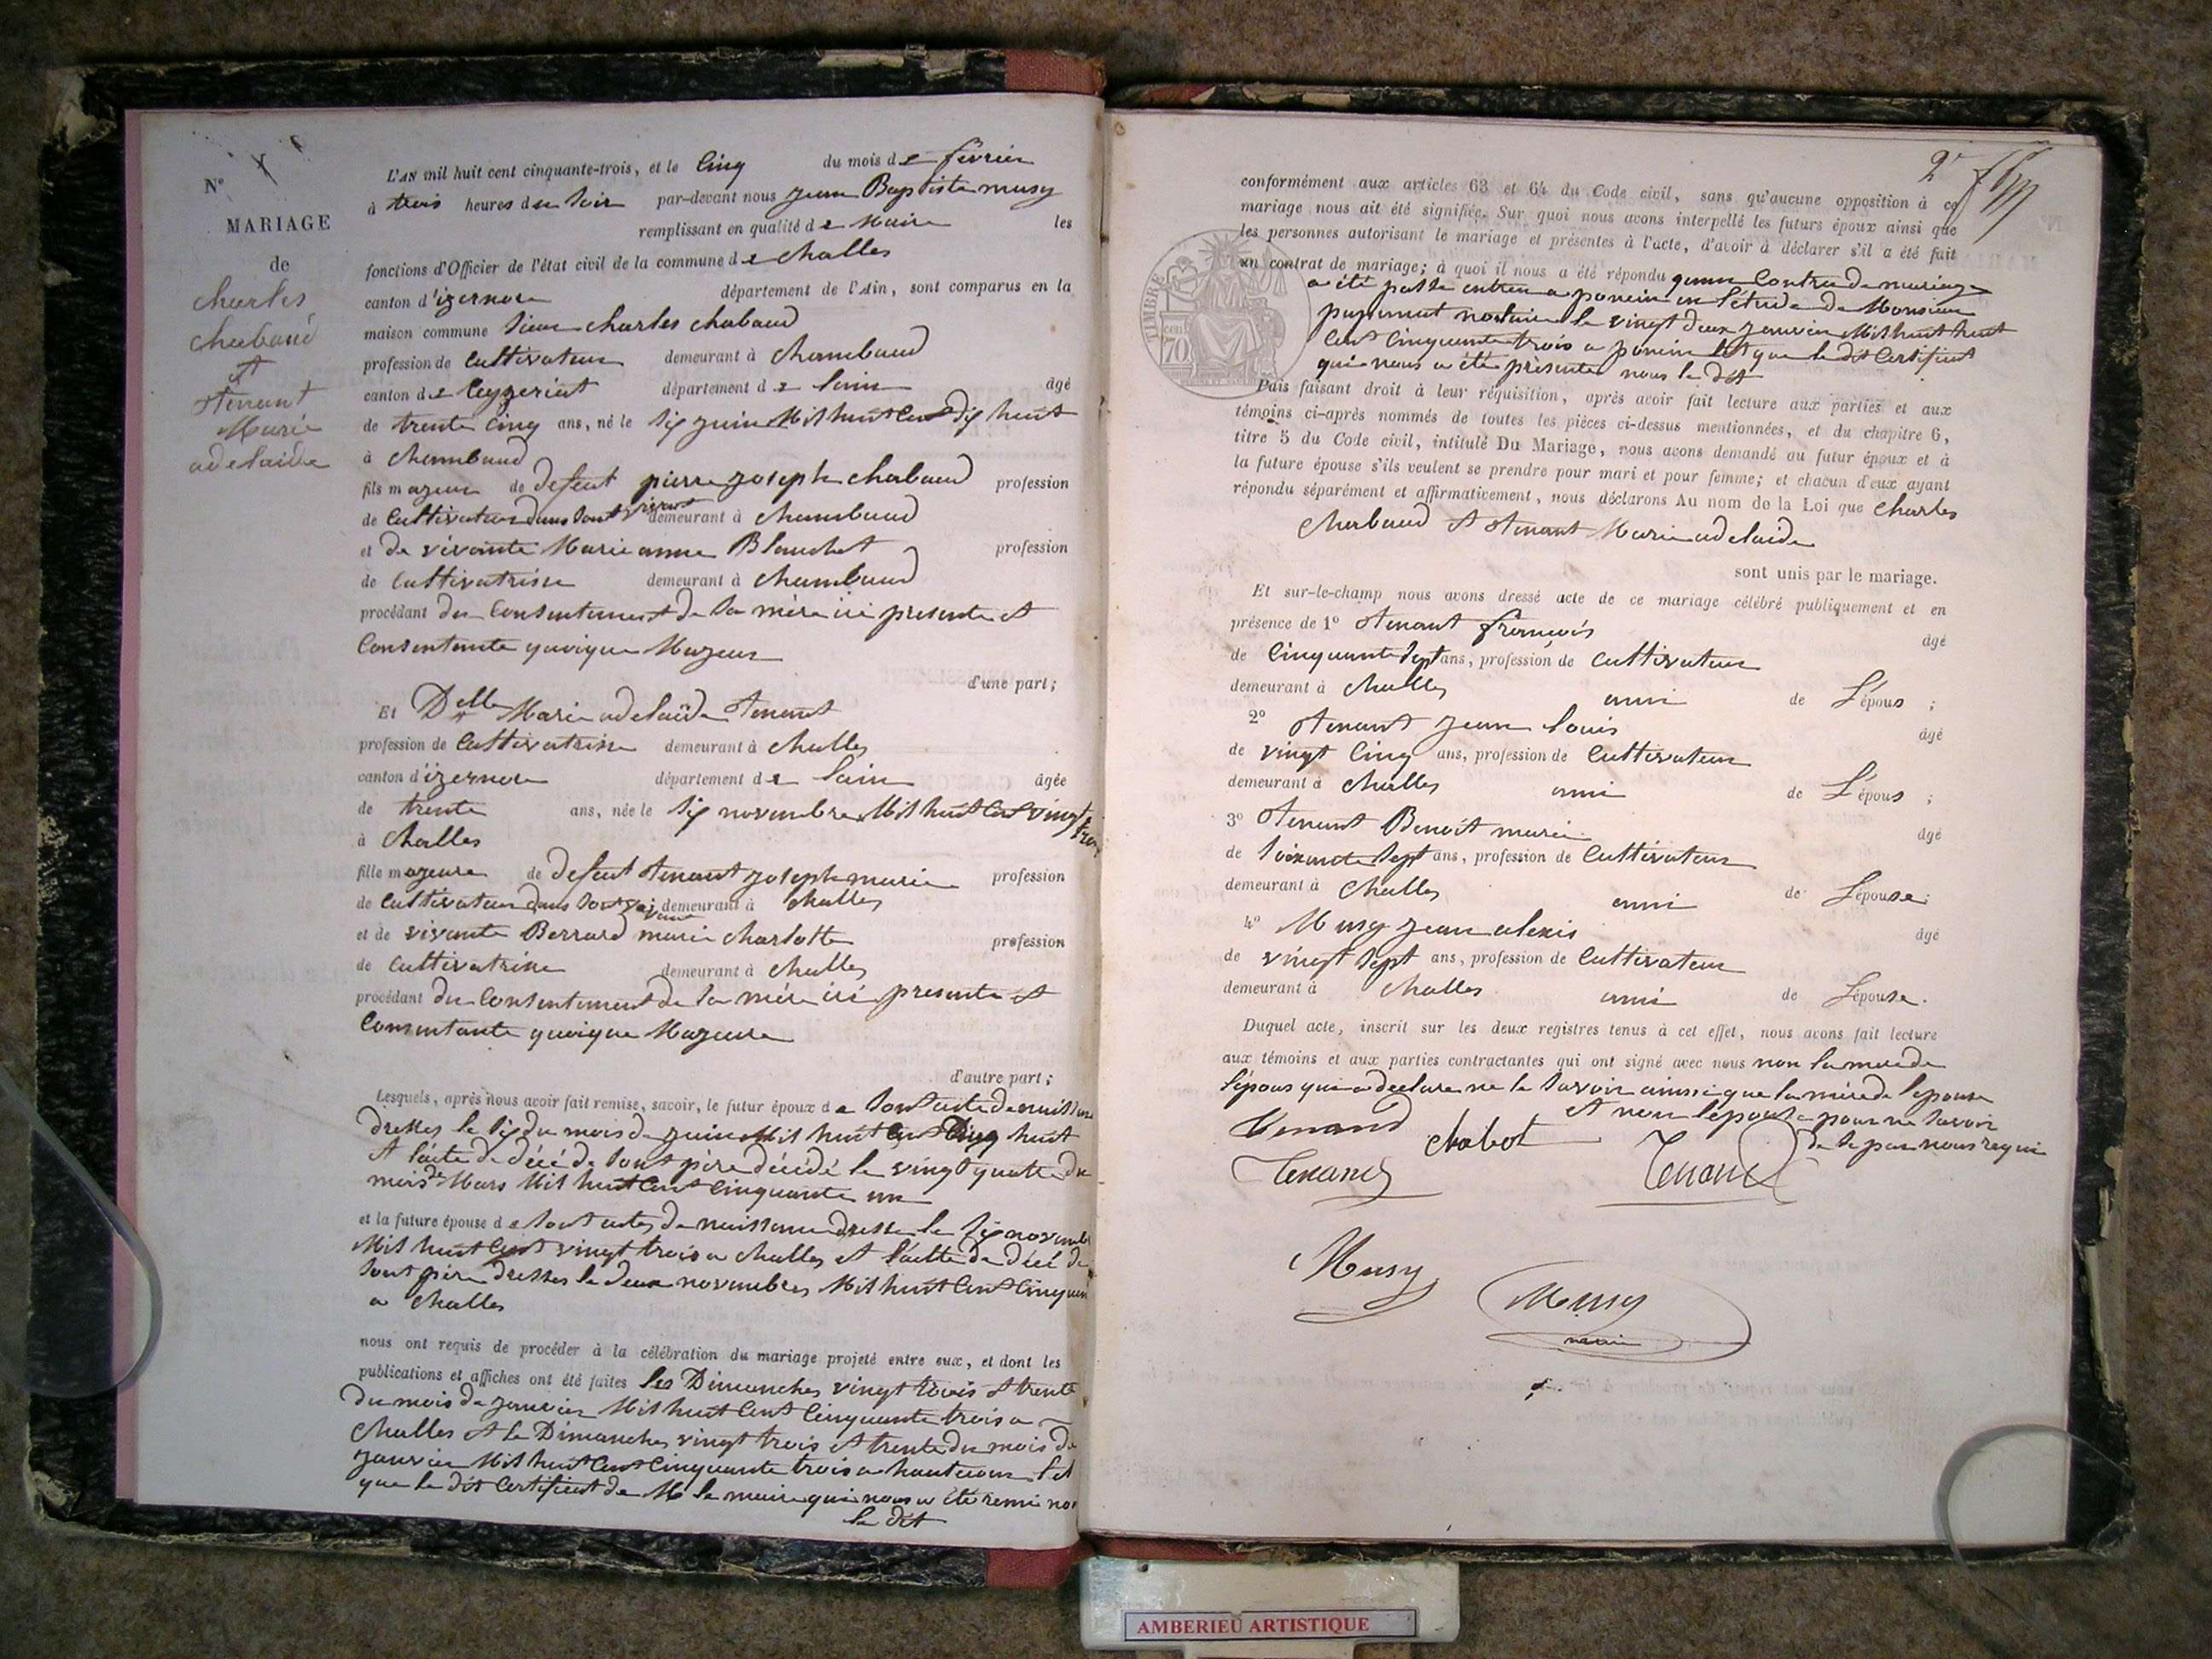 N°
MARIAGE
de
Charles
Chabaud
et
Tenant
Marie
adelaide
L'AN mil huit cent cinquante-trois, et le Cinq du mois de février
à trois heures du soir par-devant nous jean Baptiste musy
remplissant en qualité de Maire les
fonctions d'Officier de l'état civil de la commune de challes
canton d'izernore département de l'Ain, sont comparus en la
maison commune sieur charles chabaud
profession de Cultivateur demeurant à chambaud
canton de Ceyzeriat département de lain âgé
de trente Cinq ans, né le six juin Mil huit Cent dix huit
à chambaud
fils majeur de defeut pierre joseph chabaud profession
de Cultivateur dans sont vivant demeurant à chambaud
et de vivante Marie anne Blanchet profession
de Cultivatrisse demeurant à chambaud
procédant du Consentement de sa mère ici presente et
Consentente quoique Majeur
d'une part;
Et Delle Marie adelaïde tenant
profession de Cultivatrisse demeurant à challes
canton d'izernore département de lain âgée
de trente ans, née le six novembre Mil huit Cent vingt trois
à challes
fille majeure de defeut tenant joseph marie profession
de Cultivateur dans sont vivant demeurant à challes
et de vivante Berrard marie charlotte profession
de Cultivatrisse demeurant à challes
procédant du Consentement de sa mère ici presente et
Consentante quoique Majeure
d'autre part;
Lesquels, après nous avoir fait remise, savoir, le futur époux de sont acte de naissance
dresses le six du mois de juin Mil huit Cent dix huit
et lacte de décé de sont père décédé le vingt quatre du
mois de Mars Mil huit Cent Cinquante un
et la future épouse de sont actes de naissance dresse le six novembre
Mil huit Cent vingt trois a challes et lactte de décé de
sont père dresses le deux novembres Mil huit Cent Cinquante
a challes
nous ont requis de procéder à la célébration du mariage projeté entre eux, et dont les
publications et affiches ont été faites les Dimanches vingt trois et trente
du mois de janvier Mil huit Cent Cinquante trois a
challes et le Dimanches vingt trois et trente du mois de
janvier Mil huit Cent Cinquante trois a hautecour tel
que le dit Certificat de M le maire qui nous a été remi nous
le dit
2e
conformément aux articles 63 et 64 du Code civil, sans qu'aucune opposition à ce
mariage nous ait été signifiée. Sur quoi nous avons interpellé les futurs époux ainsi que
les personnes autorisant le mariage et présentes à l'acte, d'avoir à déclarer s'il a été fait
un contrat de mariage; à quoi il nous a été répondu quun Contra de mariage
a été passé entreu a poncin en létude de Monsieur
notaire le vingt deux janvier Mil huit huit
Cent Cinquante trois a poncin tel que le dit Certificat
qui nous a été présenter nous le dit
TIMBRE
cen
70
Puis faisant droit à leur réquisition, après avoir fait lecture aux parties et aux
témoins ci-après nommés de toutes les pièces ci-dessus mentionnées, et du chapitre 6,
titre 5 du Code civil, intitulé Du Mariage, nous avons demandé au futur époux et à
la future épouse s'ils veulent se prendre pour mari et pour femme; et chacun d'eux ayant
répondu séparément et affirmativement, nous déclarons Au nom de la Loi que Charles
Chabaud et tenant Marie adelaide
sont unis par le mariage.
Et sur-le-champ nous avons dressé acte de ce mariage célébré publiquement et en
présence de 1° tenant françois âgé
de Cinquante sept ans, profession de Cultivateur
demeurant à challes ami de l'épous ;
2° tenant jean louis âgé
de vingt Cinq ans, profession de Cultivateur
demeurant à challes ami de l'épous ;
3° tenant Benoit marie âgé
de soixante sept ans, profession de Cultivateur
demeurant à challes ami de l'épouse ;
4° Musy jean alexis âgé
de vingt sept ans, profession de Cultivateur
demeurant à challes ami de l'épouse.
Duquel acte, inscrit sur les deux registres tenus à cet effet, nous avons fait lecture
aux témoins et aux parties contractantes qui ont signé avec nous non la mère de
lépous qui a declare ne le savoir ainsi que la mère de lepouse
et non lepouse pour ne savoir
de se par nous requi
Tenand
chabot
Tenand
Tenand
Musy
Musy
maire
AMBERIEU ARTISTIQUE